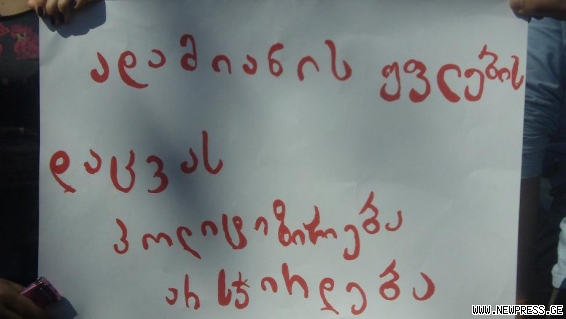 ადამიანის უფლების
დაცვას
პოლიტიზირება
არ სჭირდება
WWW.NEWPRESS.GE